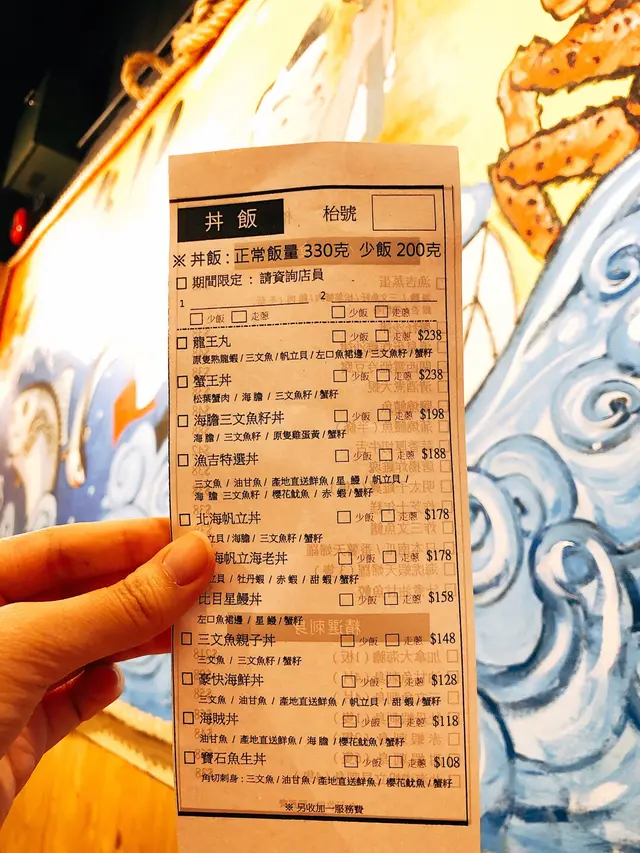 丼飯 枱號
※ 丼飯 : 正常飯量 330克 少飯 200克
期間限定 : 請資詢店員
1 2
少飯 走蔥 少飯 走蔥
龍王丸 少飯 走蔥 $238
原隻熟龍蝦 / 三文魚 / 帆立貝 / 左口魚裙邊 / 三文魚籽 / 蟹籽
蟹王丼 少飯 走蔥 $238
松葉蟹肉 / 海膽 / 三文魚籽 / 蟹籽
海膽三文魚籽丼 少飯 走蔥 $198
海膽 / 三文魚籽 / 原隻雞蛋黃 / 蟹籽
漁吉特選丼 少飯 走蔥 $188
三文魚 / 油甘魚 / 產地直送鮮魚 / 星鰻 / 帆立貝 /
海膽 三文魚籽 / 櫻花魷魚 / 赤蝦 / 蟹籽
北海帆立丼 少飯 走蔥 $178
立貝 / 海膽 / 三文魚籽 / 蟹籽
海帆立海老丼 少飯 走蔥 $178
立貝 / 牡丹蝦 / 赤蝦 / 甜蝦 / 蟹籽
比目星鰻丼 少飯 走蔥 $158
左口魚裙邊 / 星鰻 / 蟹籽
三文魚親子丼 少飯 走蔥 $148
三文魚 / 三文魚籽 / 蟹籽
豪快海鮮丼 少飯 走蔥 $128
三文魚 / 油甘魚 / 產地直送鮮魚 / 帆立貝 / 甜蝦 / 蟹籽
海賊丼 少飯 走蔥 $118
油甘魚 / 產地直送鮮魚 / 海膽 / 櫻花魷魚 / 蟹籽
寶石魚生丼 少飯 走蔥 $108
角切刺身 : 三文魚 / 油甘魚 / 產地直送鮮魚 / 櫻花魷魚 / 蟹籽
※ 另收加一服務費